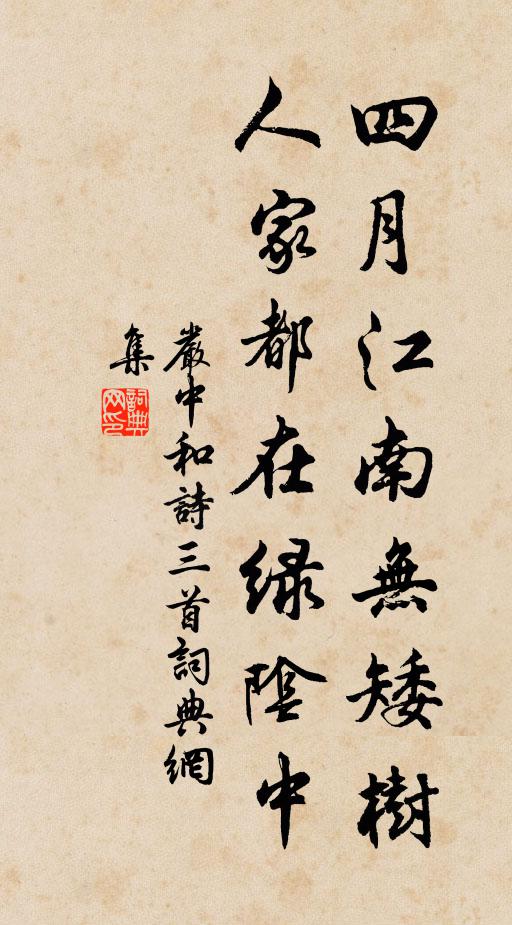 四月江南無矮樹
人家都在綠陰中
嚴中和詩三首詞典網
集
詞典
网印